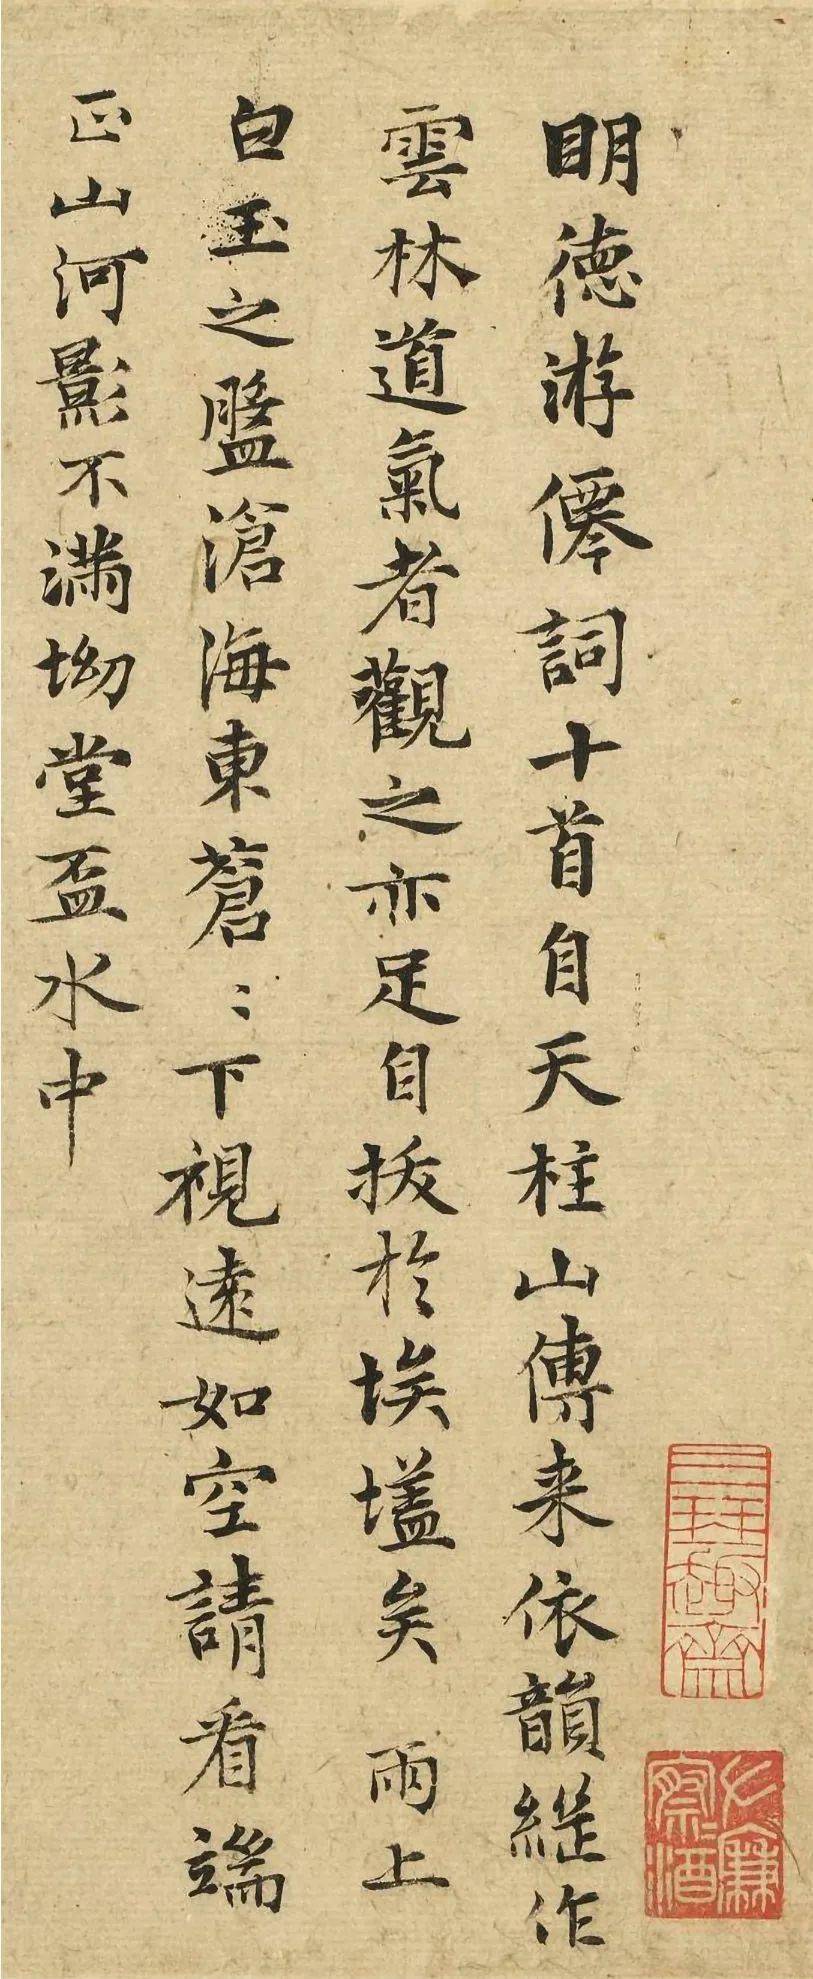 明德游僊詞十首自天柱山傳来依韻継作
雲林道氣者觀之亦足自拔於埃壒矣　雨上
白玉之盤滄海東蒼〻下視遠如空請看端
正山河影不满坳堂盃水中
三琖趣齋